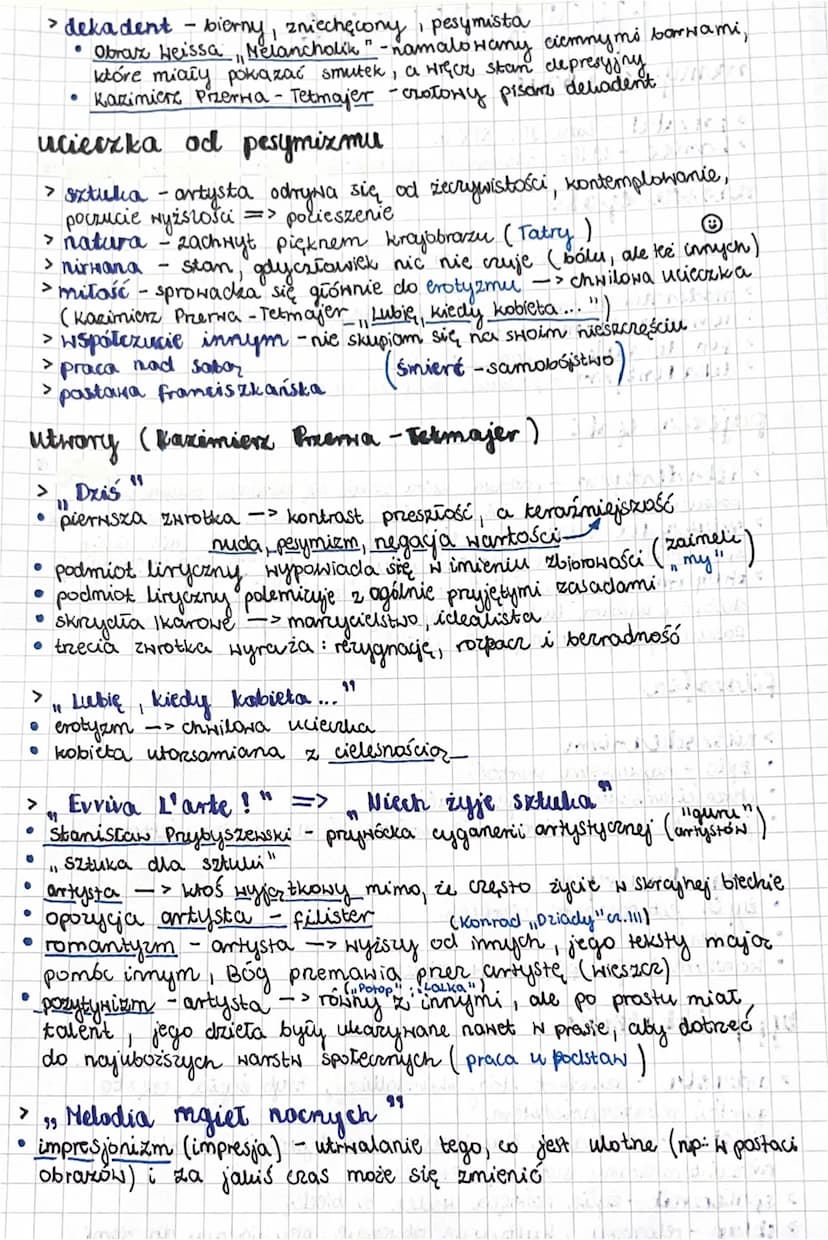 > dekadent - bierny, zniechęcony, pesymista
• Obraz Weissa „Melancholik" - namalowany ciemnymi barwami,
które miały pokazać smutek, a wręcz stan depresyjny
• Kazimierz Przerwa - Tetmajer - czołowy pisarz dekadent
ucieczka od pesymizmu
> sztuka - artysta odrywa się od żeczywistości, kontemplowanie,
poczucie wyższości => pocieszenie
> natura - zachwyt pięknem krajobrazu (Tatry)
> nirwana - stan, gdy człowiek nic nie czuje (bólu, ale też innych)
> miłość - sprowadza się głównie do erotyzmu -> chwilowa ucieczka
(Kazimierz Przerwa - Tetmajer „Lubię, kiedy kobieta...")
> współczucie innym - nie skupiam się na swoim nieszczęściu
> praca nad sobą (śmierć - samobójstwo)
> postawa franciszkańska
utwory (Kazimierz Przerwa - Tetmajer)
> „Dziś"
• pierwsza zwrotka -> kontrast przeszłość, a teraźniejszość
nuda, pesymizm, negacja wartości
• podmiot liryczny wypowiada się w imieniu zbiorowości (zaimek „my")
• podmiot liryczny polemizuje z ogólnie przyjętymi zasadami
• skrzydła Ikarowe -> marzycielstwo, idealista
• trzecia zwrotka wyraża: rezygnację, rozpacz i bezradność
> „Lubię, kiedy kobieta..."
• erotyzm -> chwilowa ucieczka
• kobieta utożsamiana z cielesnością
> „Evviva L'arte!" => „Niech żyje sztuka"
• Stanisław Przybyszewski - przywódca cyganerii artystycznej ("guru" artystów)
• „sztuka dla sztuki"
• artysta -> ktoś wyjątkowy mimo, że często życie w skrajnej biedzie
• opozycja artysta - filister (Konrad „Dziady" cz. III)
• romantyzm - artysta -> wyższy od innych, jego teksty mają
pomóc innym, Bóg przemawia przez artystę (wieszcz)
("Potop" i "Lalka")
• pozytywizm - artysta -> równy z innymi, ale po prostu miał
talent, jego dzieła były ukazywane nawet w prasie, aby dotrzeć
do najuboższych warstw społecznych (praca u podstaw)
> „Melodia mgieł nocnych"
• impresjonizm (impresja) - utrwalanie tego, co jest ulotne (np: w postaci
obrazów) i za jakiś czas może się zmienić